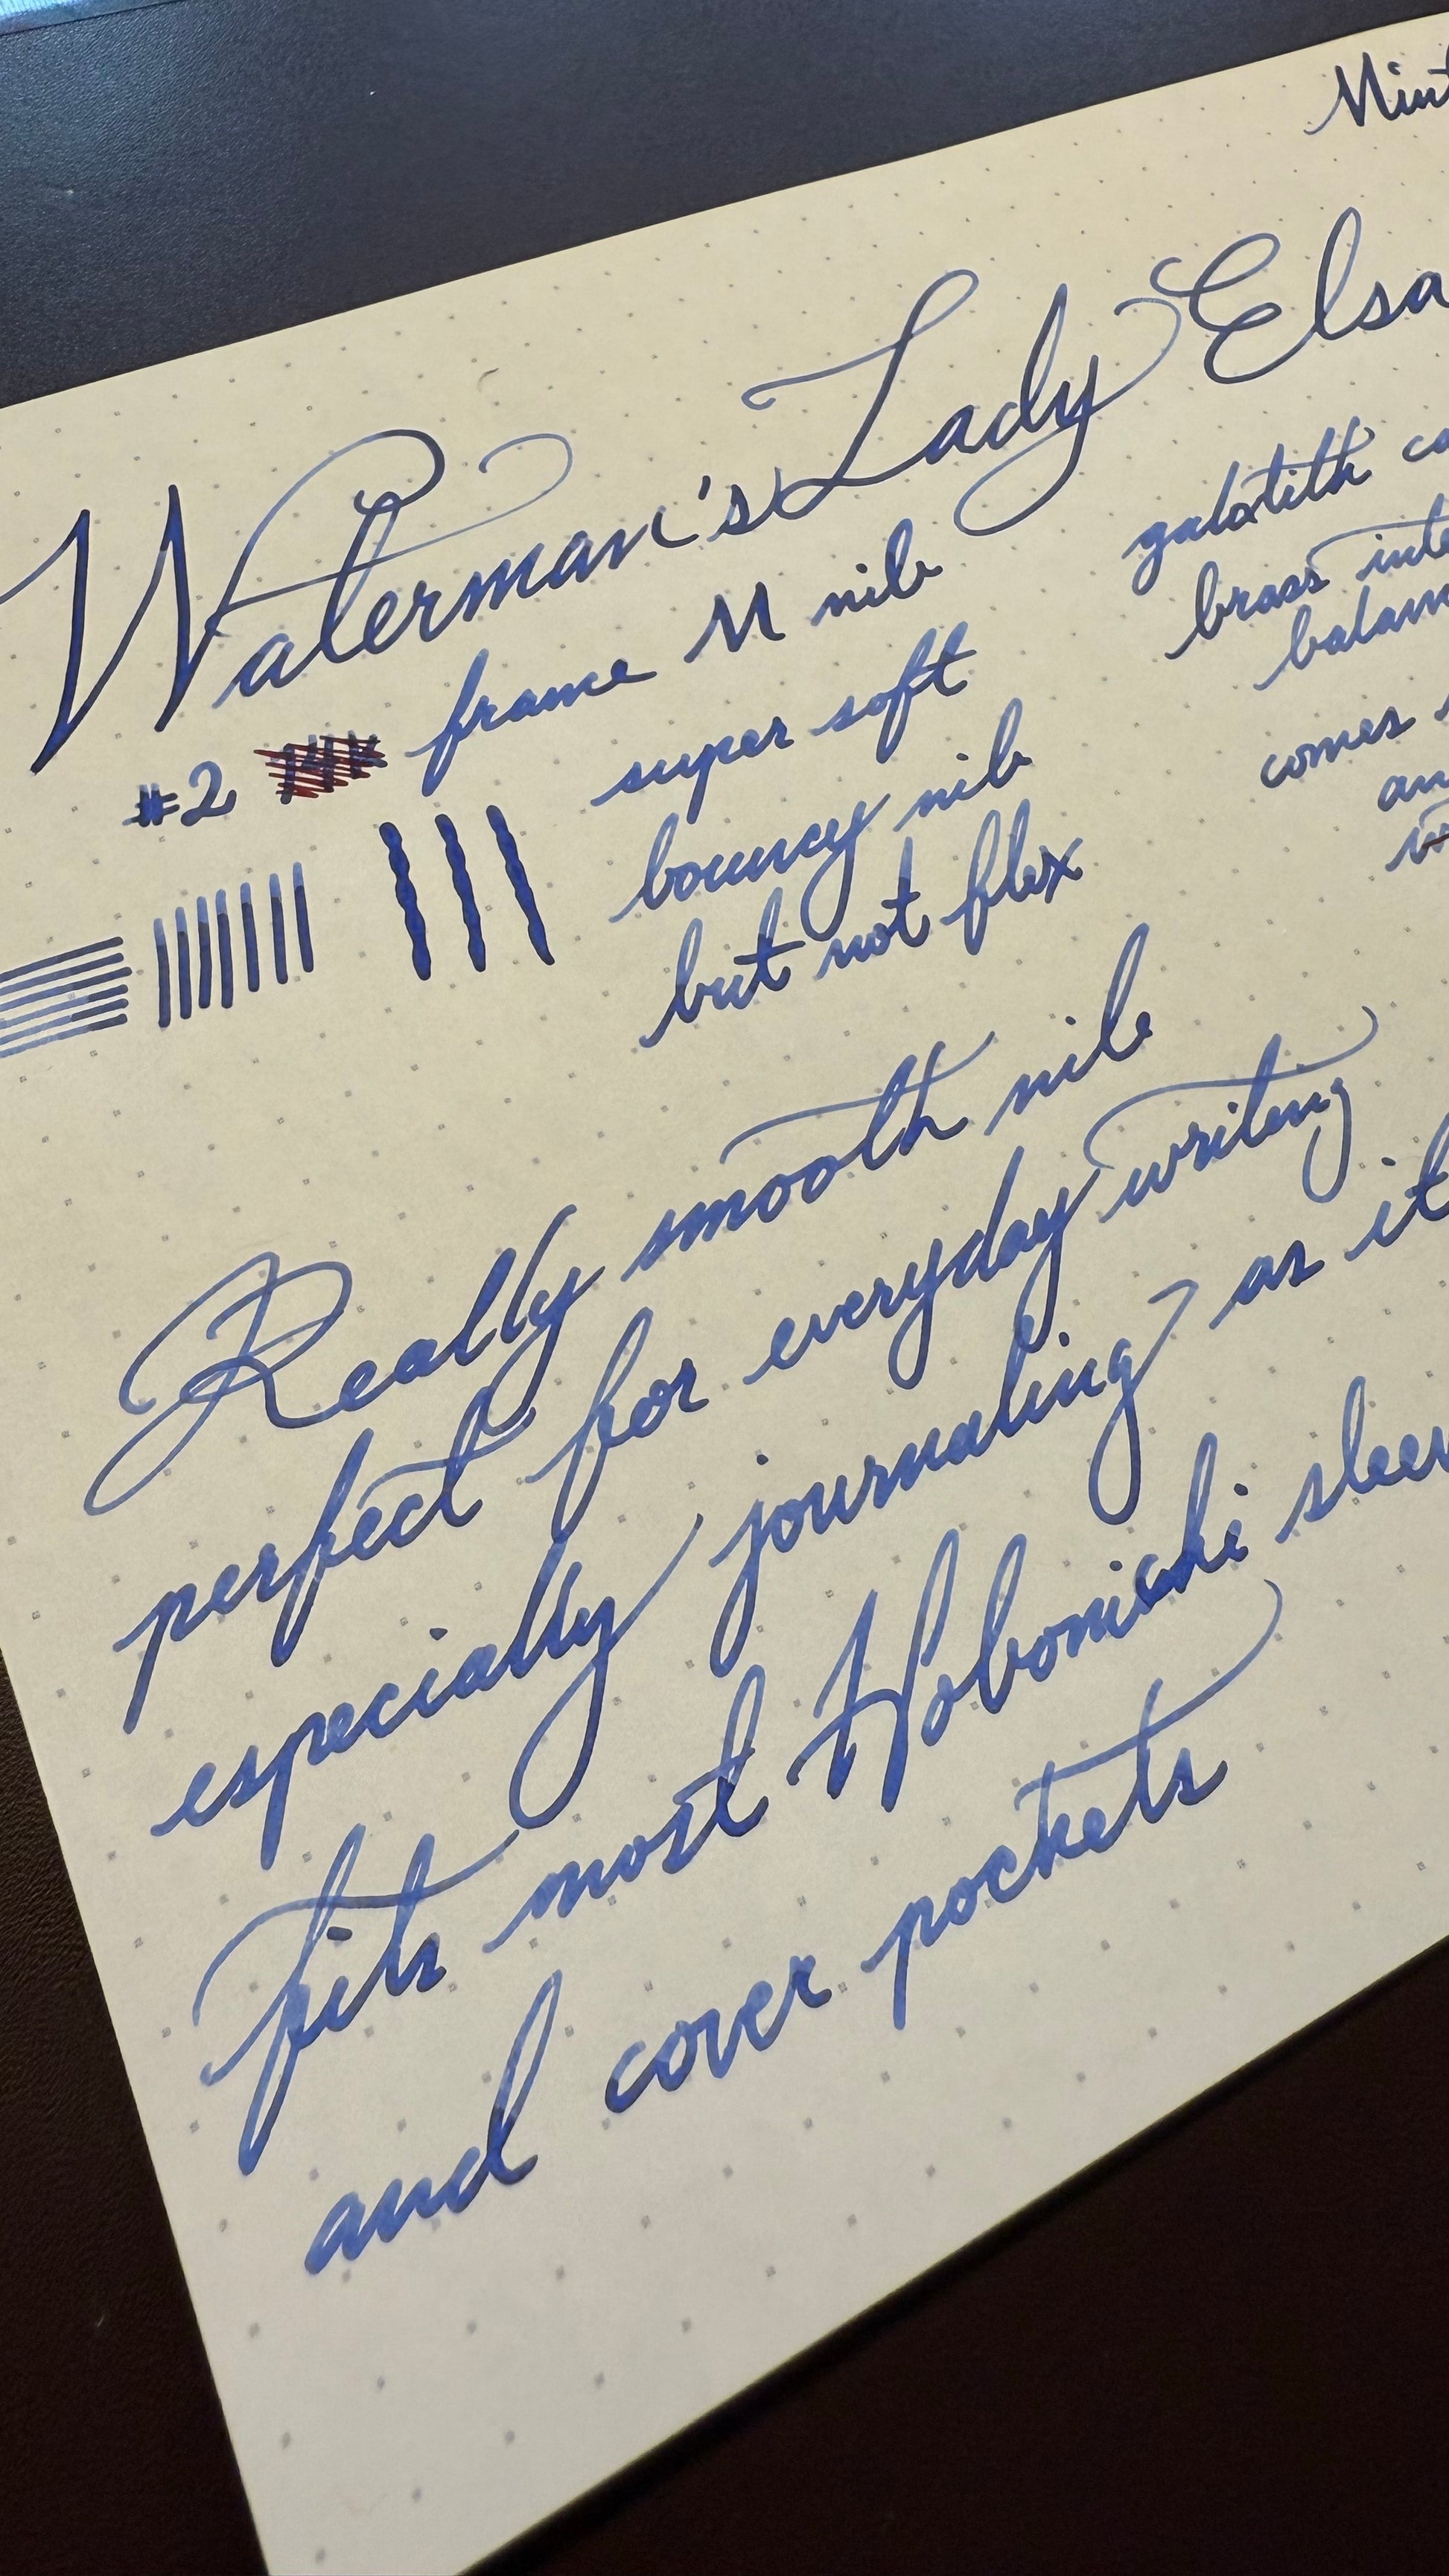 Waterman's Lady Elsa
#2 frame M nib
super soft
bouncy nib
but not flex
galatith
brass
comes
Really smooth nib
perfect for everyday writing
especially journaling as it
fits most Hobonichi
and cover pockets